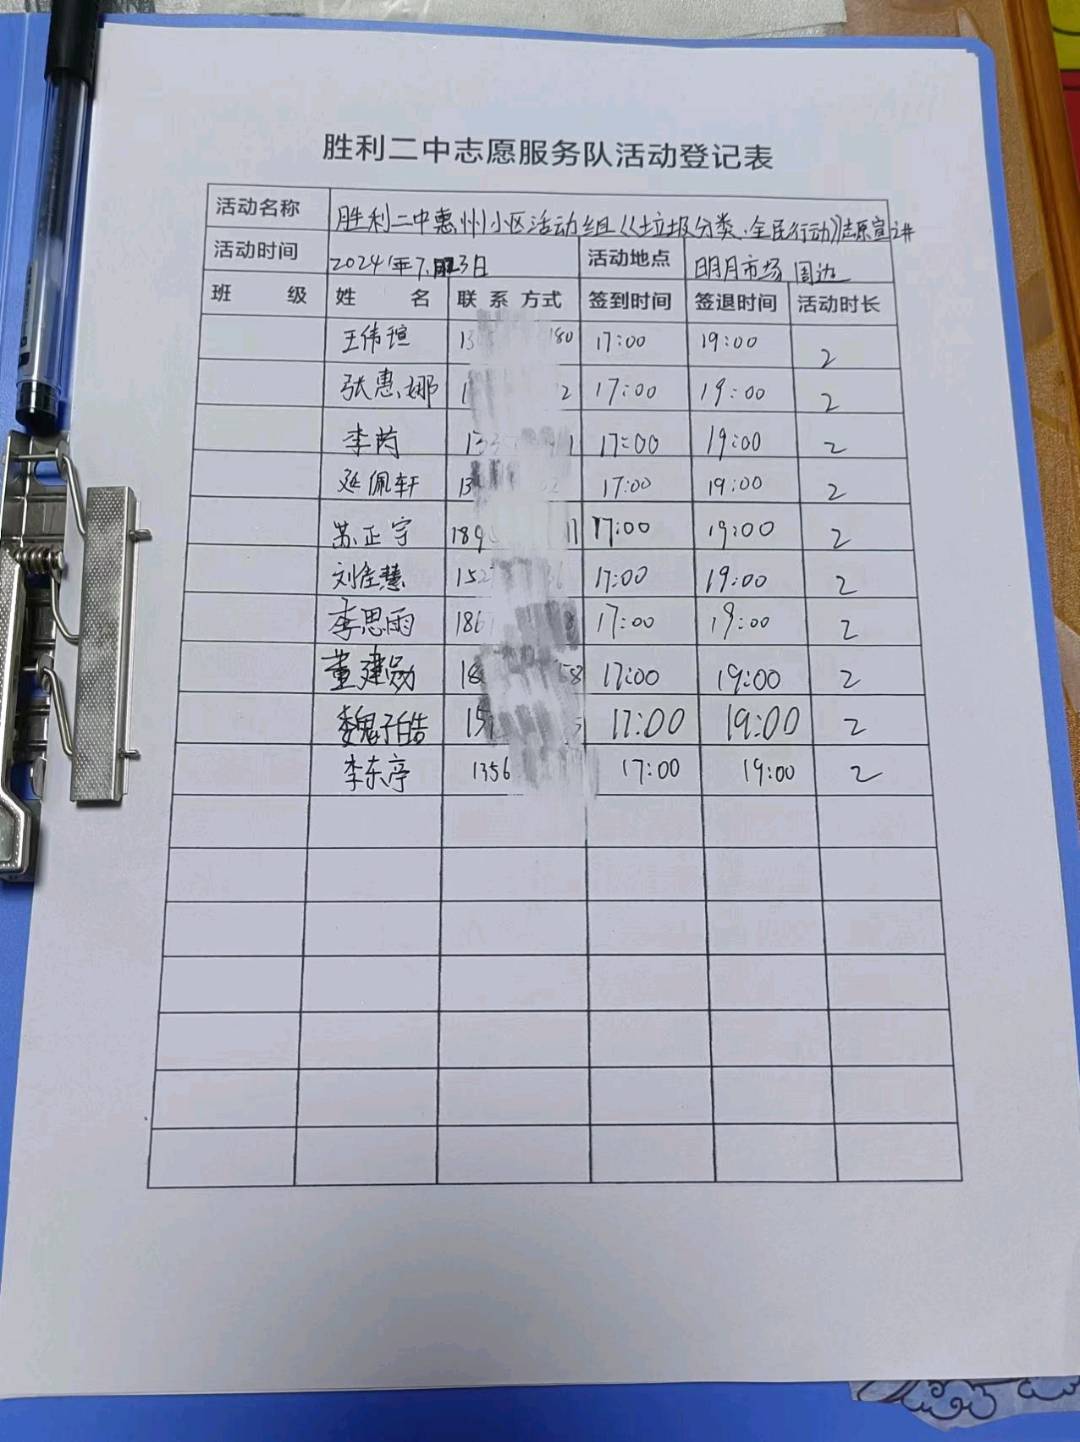 胜利二中志愿服务队活动登记表
活动名称 胜利二中惠州小区活动组《垃圾分类.全民行动》志愿宣讲
活动时间 2024年7.23日 活动地点 明月市场 周边
班 级 姓 名 联系方式 签到时间 签退时间 活动时长
王伟瑄 17:00 19:00 2
张惠娜 17:00 19:00 2
李芮 17:00 19:00 2
延佩轩 17:00 19:00 2
苏正宇 17:00 19:00 2
刘佳慧 17:00 19:00 2
李思雨 17:00 19:00 2
董建勋 17:00 19:00 2
魏子皓 17:00 19:00 2
李东亭 1356 17:00 19:00 2